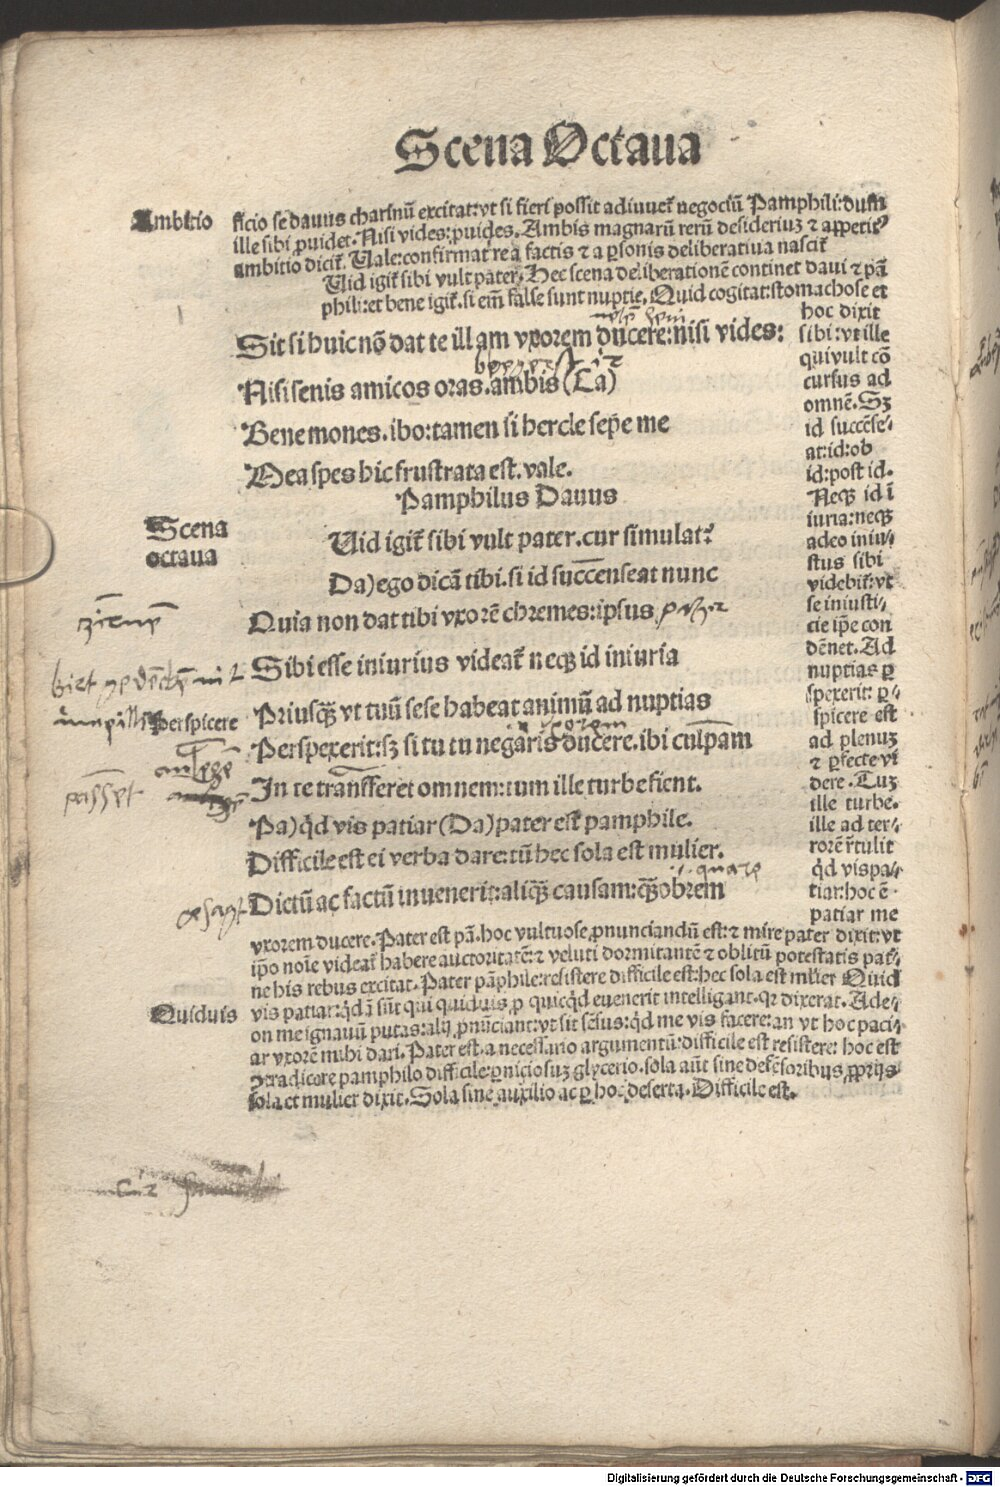 Scena Octaua
Ambitio
ficio se dauus charinū excitat: vt si fieri possit adiuuet negociū Pamphili: dum
ille sibi ꝓuidet. Nisi vides: ꝓuides. Ambis magnarū rerū desideriuꝫ ⁊ appetitꝰ
ambitio dicit̄. Uale: confirmat re a factis ⁊ a ꝑsonis deliberatiua nascit̄
Uid igit̄ sibi vult pater. Hec scena deliberationē continet daui ⁊ pā
phili: et bene igit̄. si em̄ false sunt nuptie. Quid cogitat: stomachose et
hoc dixit
Sit si huic nō dat te illam vxorem ducere: nisi vides:
sibi: vt ille
qui vult cō
Nisi senis amicos oras. ambis (Ca)
cursus ad
omnē. Sꝫ
Bene mones. ibo: tamen si hercle sepe me
id succēse⸗
at: id: ob
Mea spes hic frustrata est. vale.
id: post id.
Pamphilus Dauus
Neqꝫ id ī
Scena
octaua
iuria: neqꝫ
Uid igit̄ sibi vult pater. cur simulat?
adeo iniu⸗
stus sibi
Da) ego dicā tibi. si id succenseat nunc
videbit̄: vt
se iniusti⸗
Quia non dat tibi vxorē chremes: ipsus
cie ip̄e con
dēnet. Ad
Sibi esse iniurius videat̄ neqꝫ id iniuria
nuptias ꝑ
spexerit: ꝑ⸗
Priusqꝫ vt tuū sese habeat animū ad nuptias
spicere est
perspicere
vxorem
Perspexerit: sꝫ si tu tu negaris ducere. ibi culpam
ad plenuꝫ
⁊ ꝑfecte vi
In te transferet omnem: tum ille turbe fient.
dere. Tuꝫ
ille turbe.
Pa) qd̄ vis patiar (Da) pater est pamphile.
ille ad ter⸗
rorē r̄tulit
Difficile est ei verba dare: tū hec sola est mulier.
qd̄ vis pa⸗
i. quare
Dictū ac factū inuenerit: aliqꝫ causam: qꝫobrem
tiar: hoc ē.
patiar me
vxorem ducere. Pater est pā. hoc vultuose ꝓnunciandū est: ⁊ mire pater dixit: vt
ip̄o noīe videat̄ habere auctoritatē: ⁊ veluti dormitantē ⁊ oblitū potestatis pat⸗
ne his rebus excitat. Pater pāphile: resistere difficile est: hec sola est mulier Quid
Quiduis
vis patiar: qd̄ā sūt qui quiduis ꝓ quicqd̄ euenerit intelligant. qꝛ dixerat. Ade⸗
on me ignauū putas: alij ꝓnūciant: vt sit sēsus: qd̄ me vis facere: an vt hoc paci⸗
ar vxorē mihi dari. Pater est. a necessario argumentū: difficile est resistere: hoc est
ꝯtradicere pamphilo difficile: ꝑniciosuꝫ glycerio. sola aūt sine defēsoribus ꝓprijs
sola et mulier dixit. Sola sine auxilio ac ꝑ hoc deserta. Difficile est.
Digitalisierung gefördert durch die Deutsche Forschungsgemeinschaft - DFG